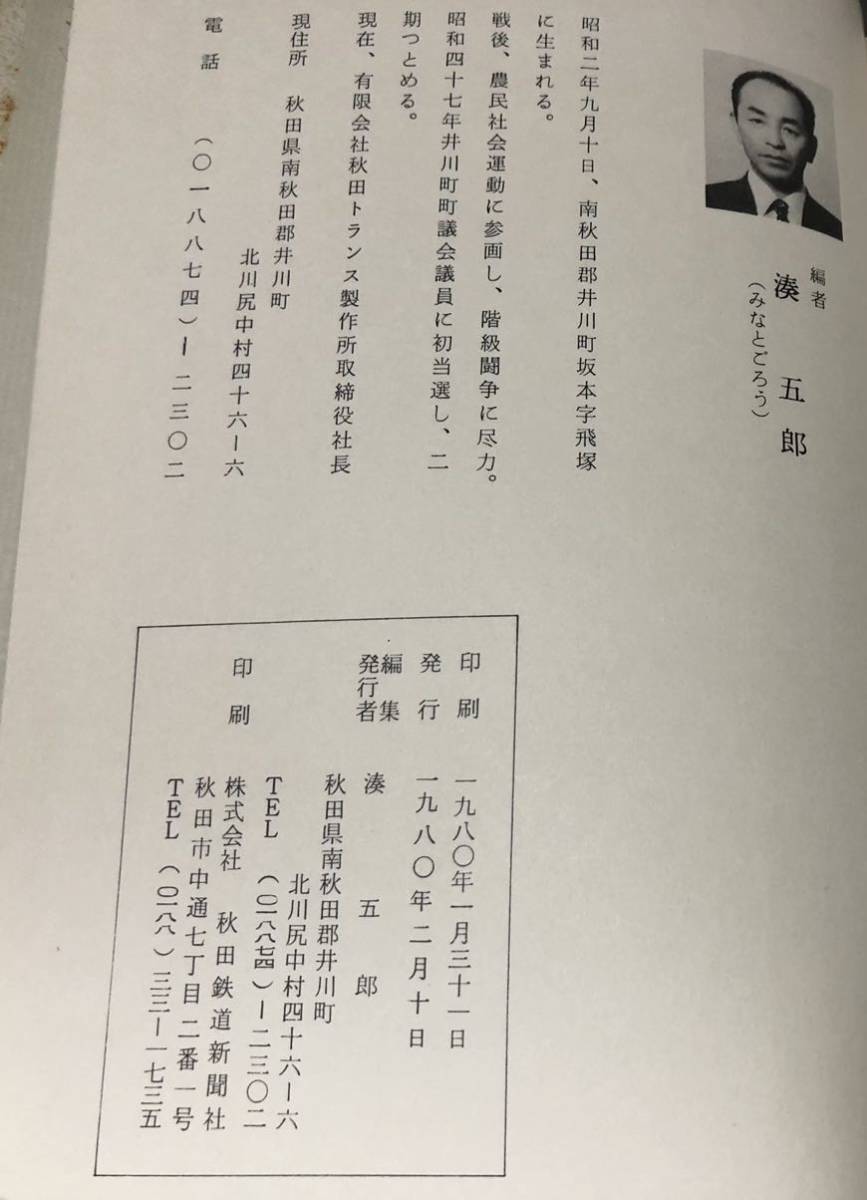 編者
湊五郎
（みなとごろう）
昭和二年九月十日、南秋田郡井川町坂本字飛塚
に生まれる。
戦後、農民社会運動に参画し、階級闘争に尽力。
昭和四十七年井川町町議会議員に初当選し、二
期つとめる。
現在、有限会社秋田トランス製作所取締役社長
現住所　秋田県南秋田郡井川町
北川尻中村四十六ー六
電話　（〇一八八七四）ー二三〇二
印刷　一九八〇年一月三十一日
発行　一九八〇年二月十日
編集
発行者　湊五郎
秋田県南秋田郡井川町
北川尻中村四十六ー六
TEL　（〇一八八七四）ー二三〇二
印刷　株式会社　秋田鉄道新聞社
秋田市中通七丁目二番一号
TEL　（〇一八八）三三ー一七三五